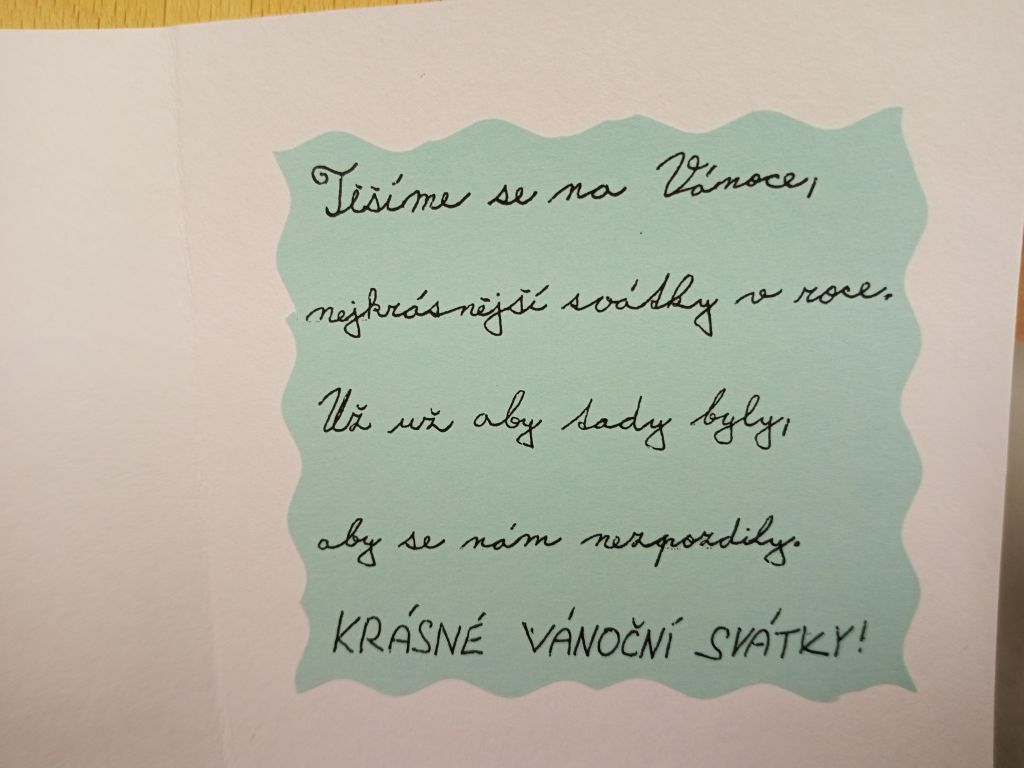 Těšíme se na Vánoce,
nejkrásnější svátky v roce.
Už už aby tady byly,
aby se nám nezpozdily.
KRÁSNÉ VÁNOČNÍ SVÁTKY!